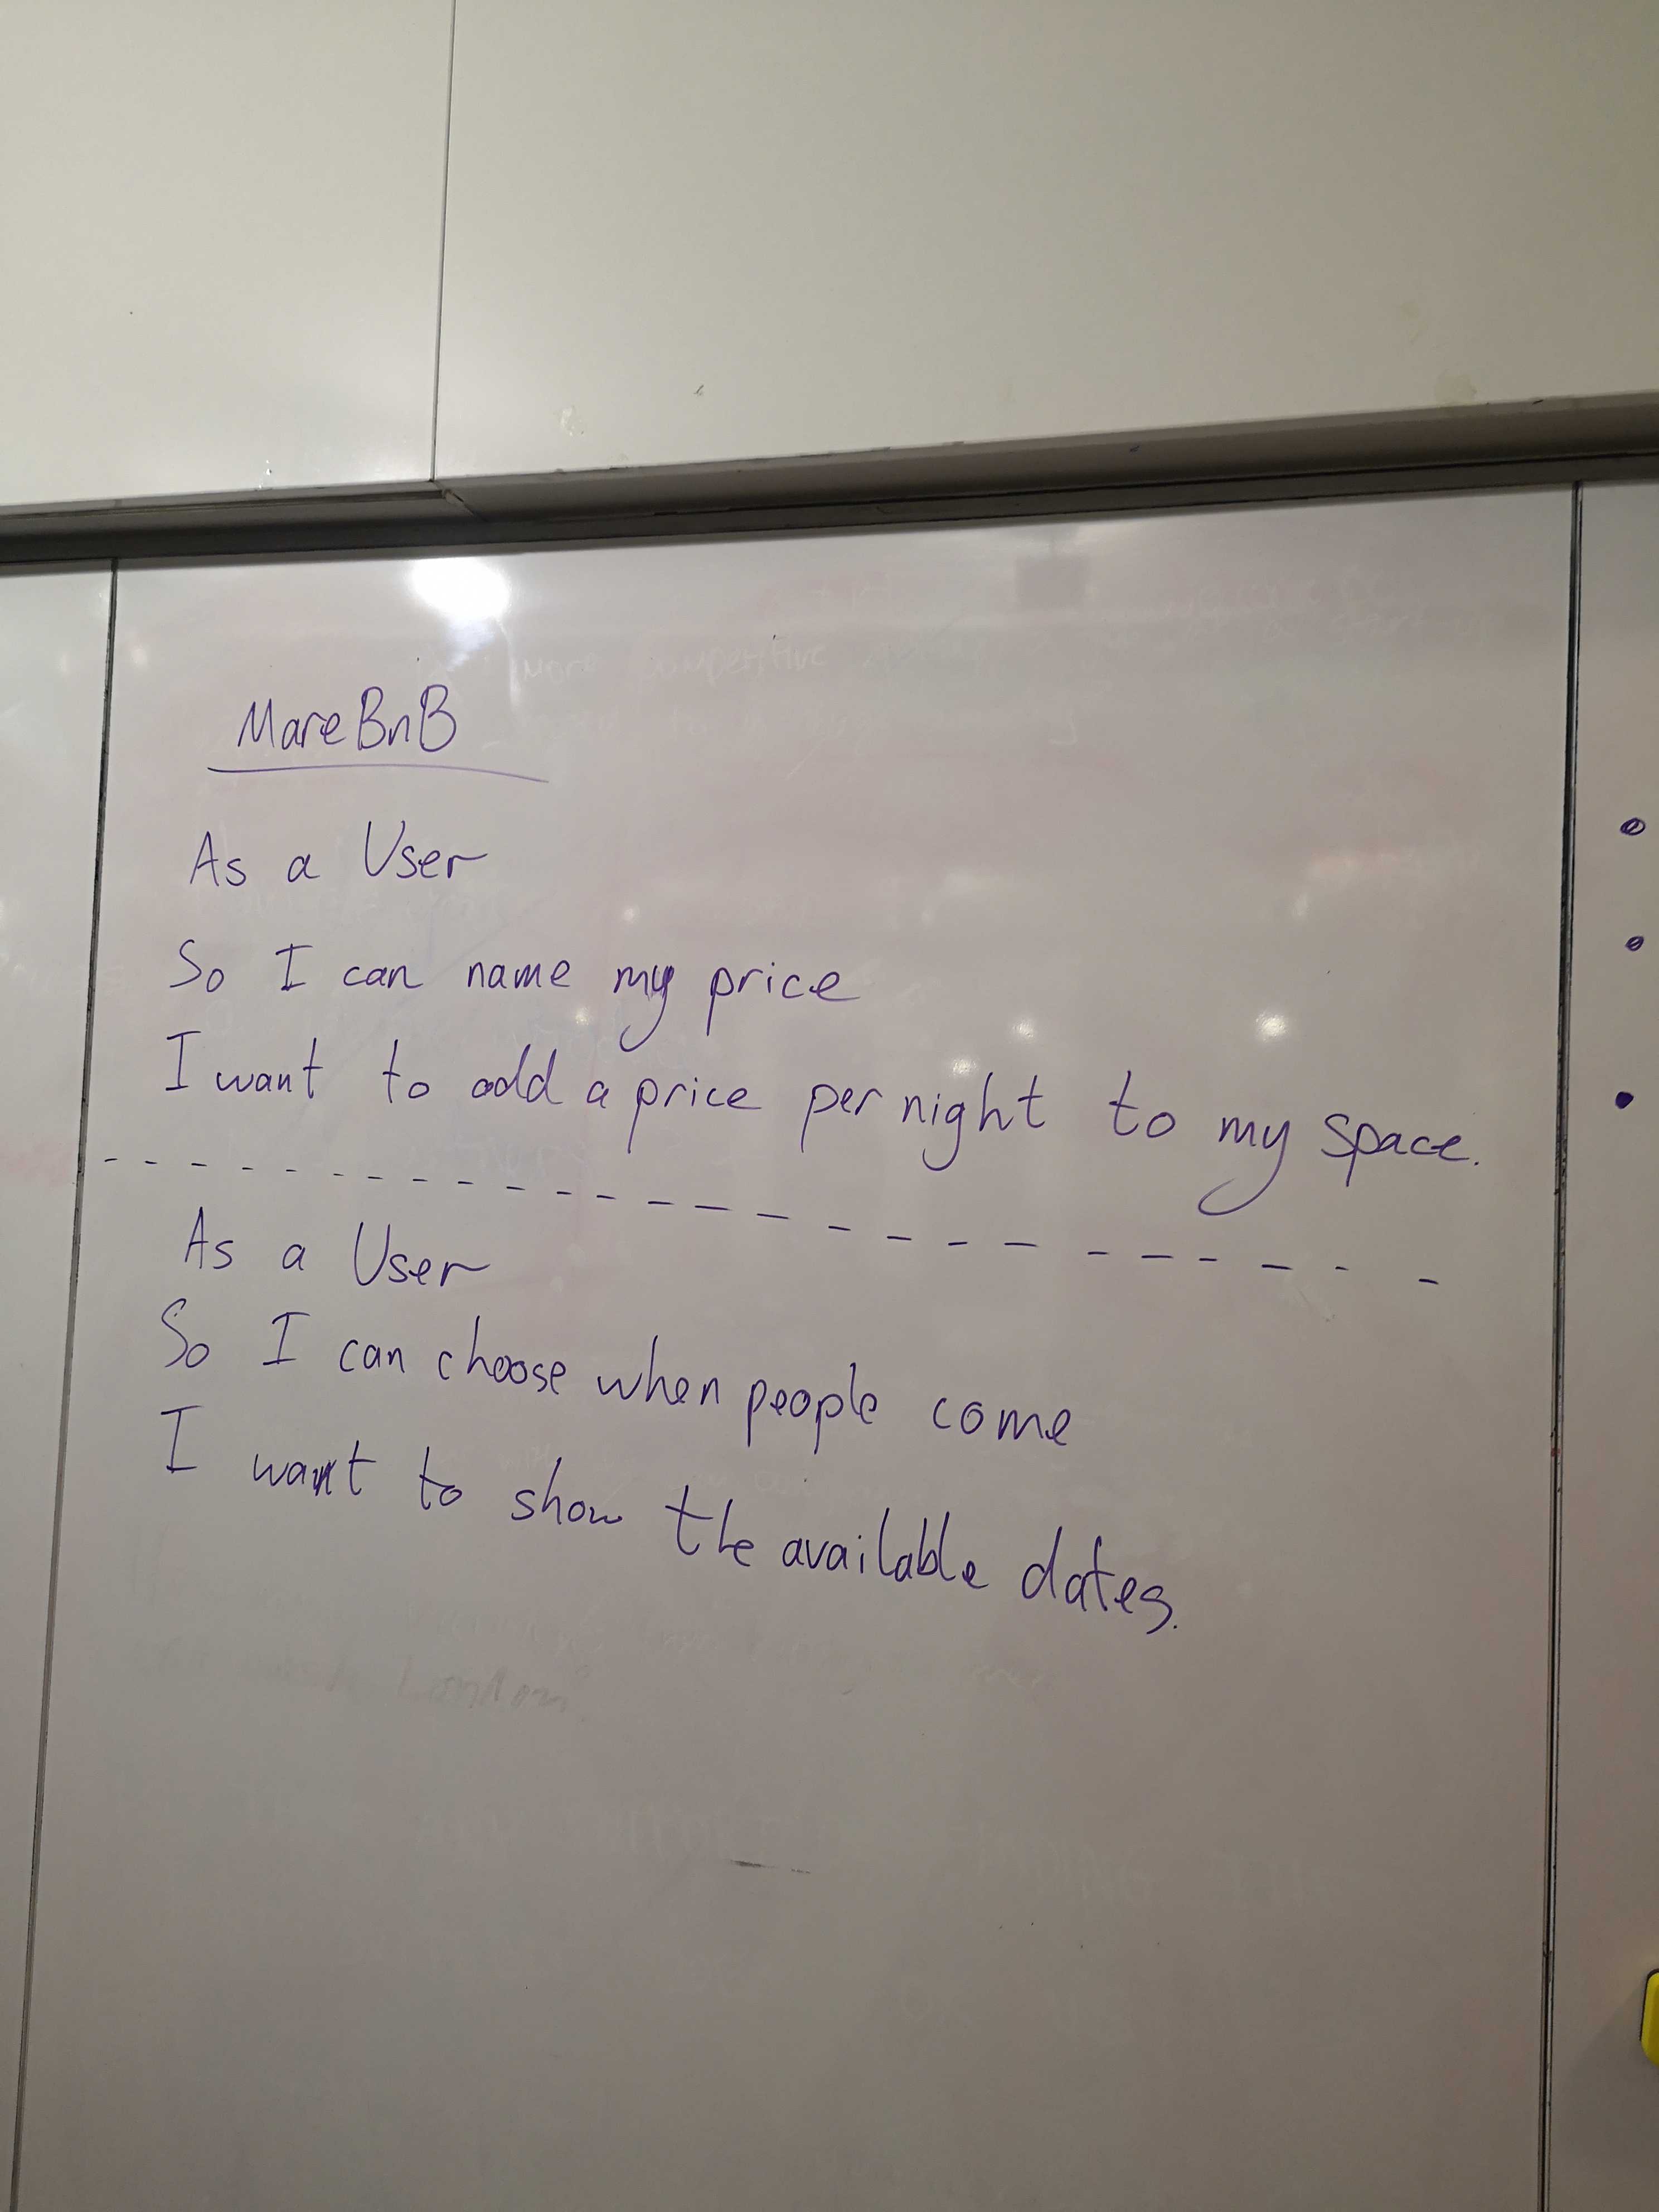 MareBnB
As a User
So I can name my price
I want to add a price per night to my space.
As a User
So I can choose when people come
I want to show the available dates.